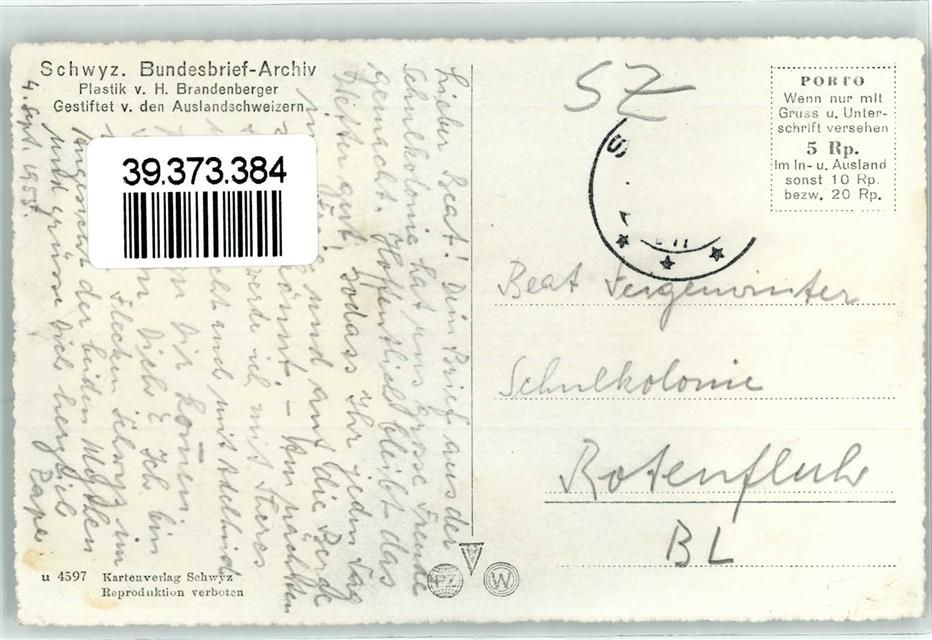 Schwyz. Bundesbrief-Archiv
Plastik v. H. Brandenberger
Gestiftet v. den Auslandschweizern
4. Sept. 1955.
39.373.384
Lieber Beat! Dein Brief aus der
Schulkolonie hat uns grosse Freude
gemacht. Hoffentlich bleibt das
Wetter gut, sodass Ihr jeden Tag
und auf die Berge
könnt – Am nächsten
werde ich mit
und mit
Dir
Dich? Ich bin
Flecken Schwyz im
Angesicht der beiden Mythen
und grüsse Dich herzlich
Papi
u 4597 Kartenverlag Schwyz
Reproduktion verboten
PZ
W
SZ
PORTO
Wenn nur mit
Gruss u. Unter-
schrift versehen
5 Rp.
Im In- u. Ausland
sonst 10 Rp.
bezw. 20 Rp.
Beat Feigenwinter
Schulkolonie
Rotenfluh
BL